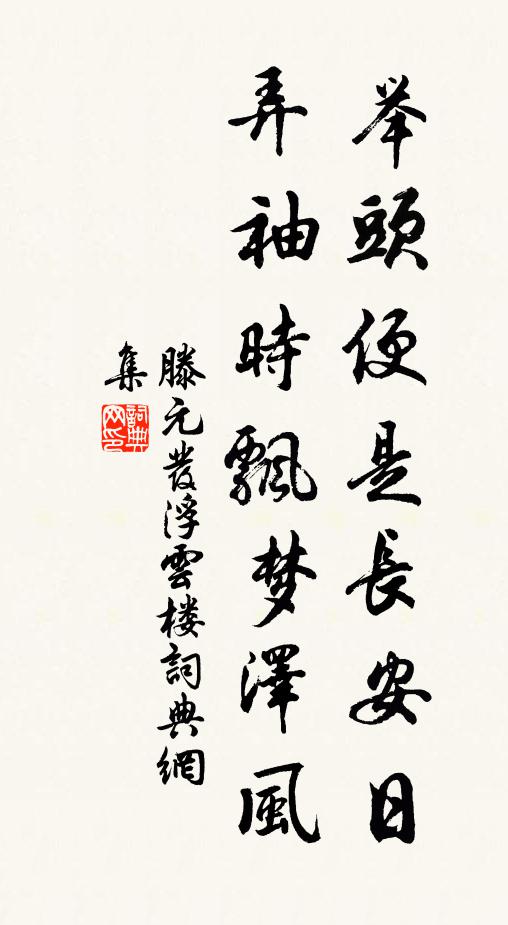 举頭便是長安日
弄袖時飄梦澤風
滕元发浮雲楼詞典網
集
詞典
网印